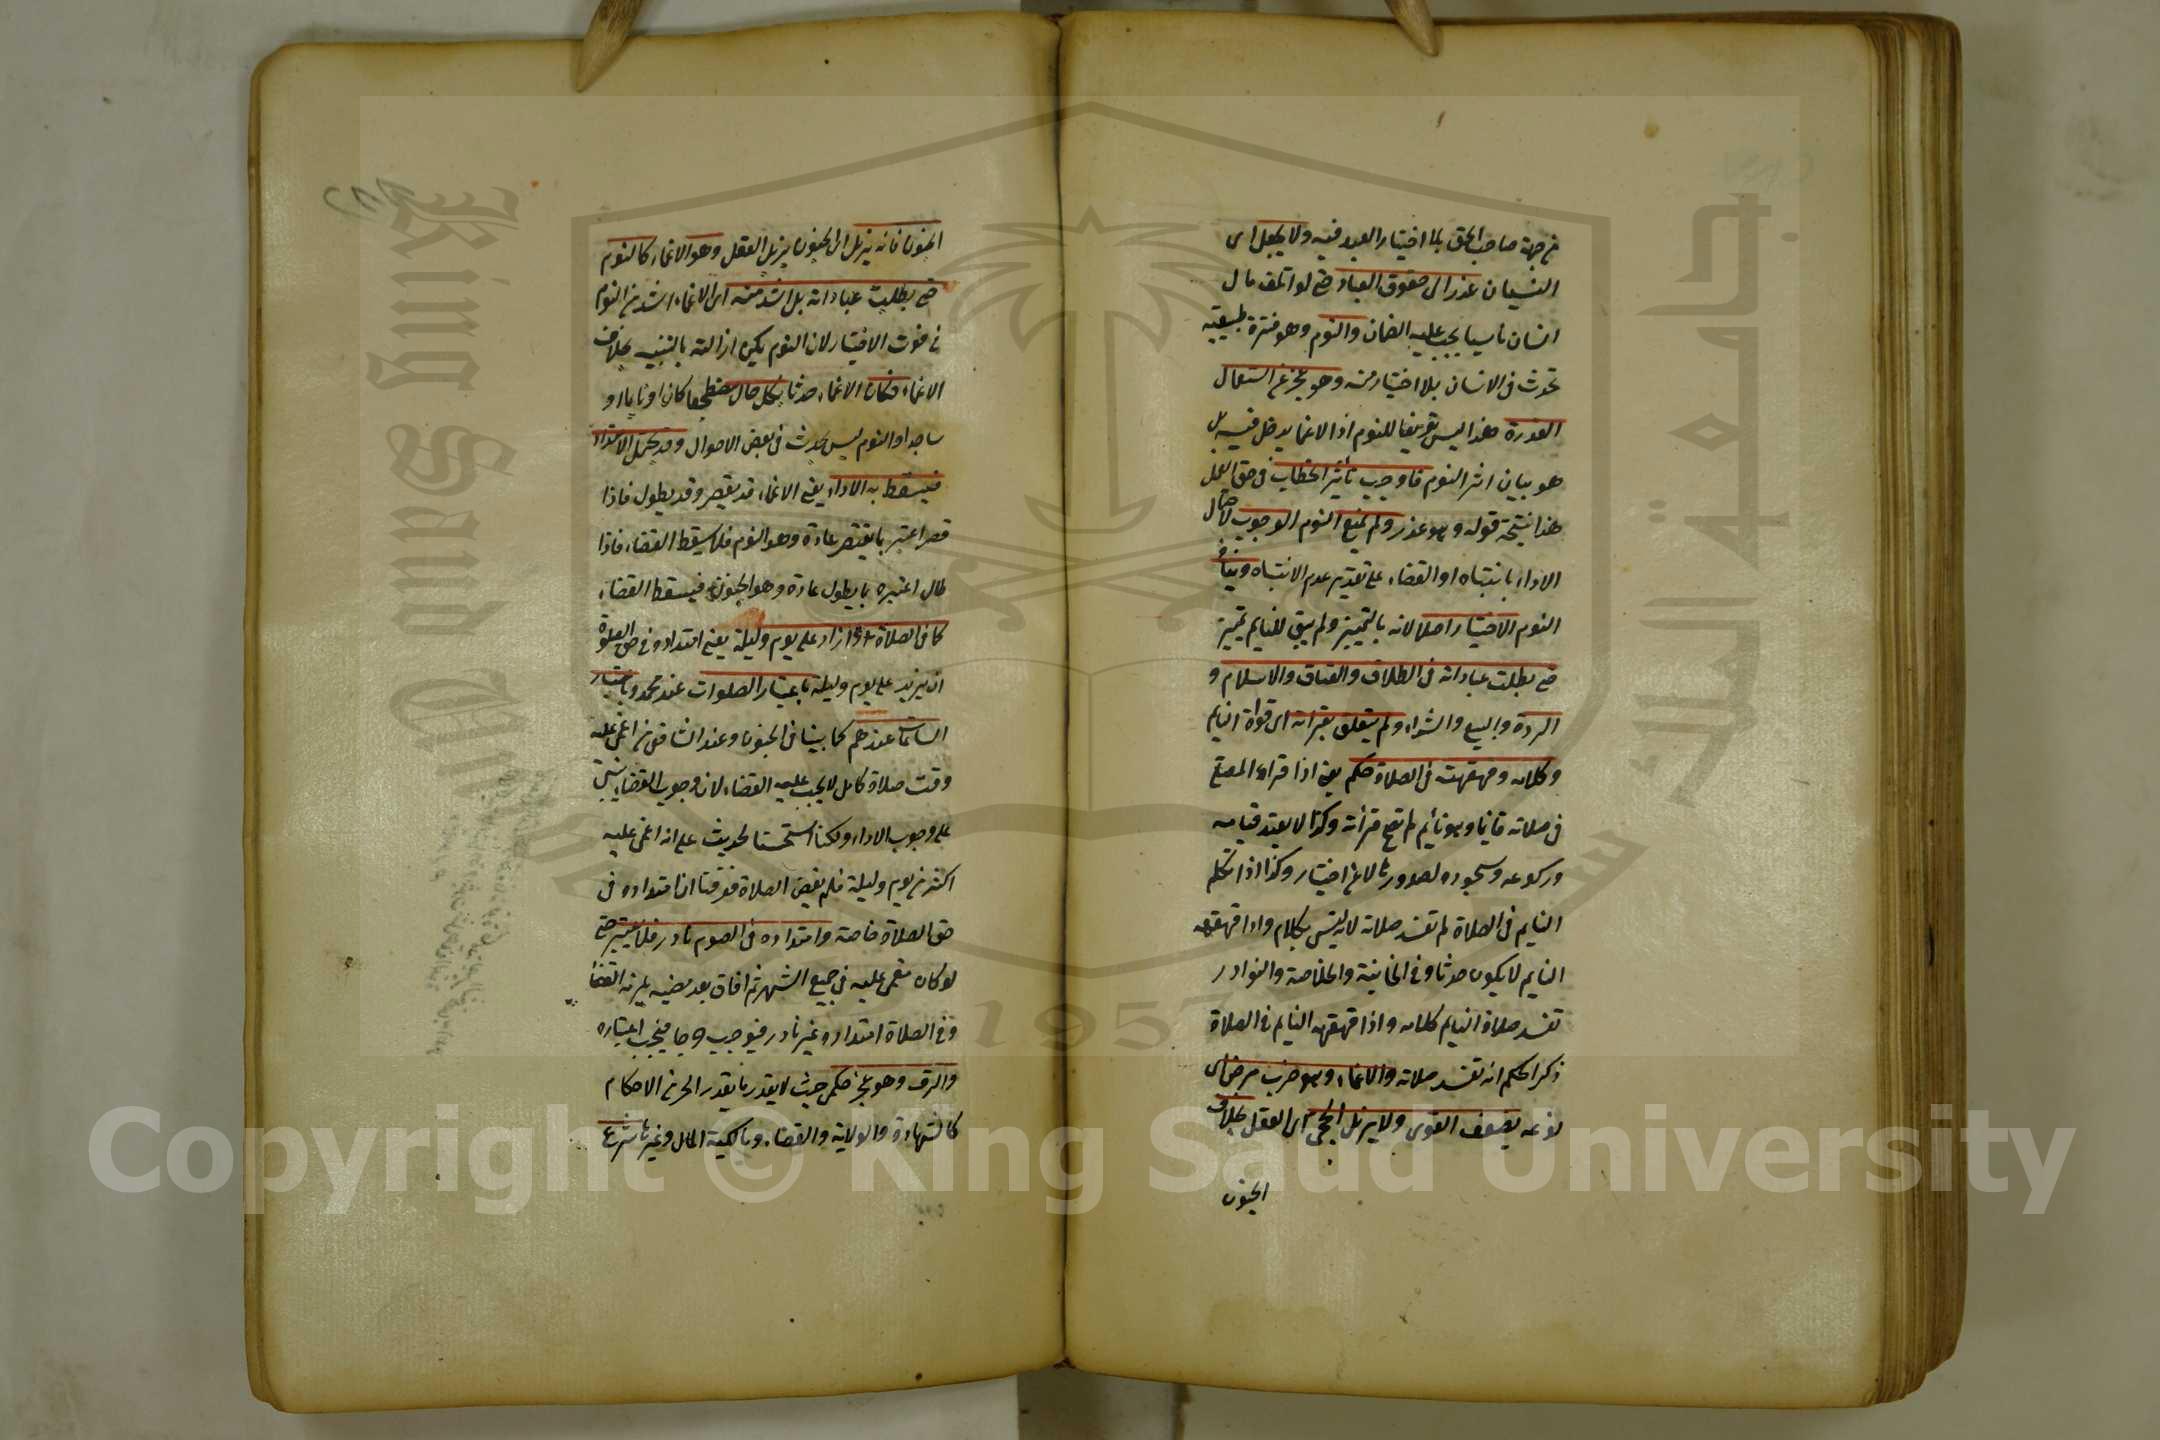 من جهة صاحب الحق بلا اختيار العبد فيه ولا يجعل اى
النسيان عذرا فى حقوق العباد حتى لو اتلف مال
انسان ناسيا يجب عليه الضمان والنوم وهو فترة طبيعية
تحدث فى الانسان بلا اختيار منه وهو عجز عن استعمال
القدرة هذا ليس تعريفا للنوم اذ الاغماء يدخل فيه بل
هو بيان اثر النوم فاوجب تأخير الخطاب فى حق العمل
هذا نتيجة قوله وهو عذر ولم يمنع النوم الوجوب لاحتمال
الاداء بانتباه او القضاء على تقدير عدم الانتباه وينافى
النوم الاختيار اصلا لانه بالتمييز ولم يبق للنايم تمييز
حتى بطلت عباراته فى الطلاق والعتاق والاسلام و
الردة والبيع والشراء ولم يتعلق بقراته اى قراة النايم
وكلامه وقهقهته فى الصلاة حكم يعنى اذا قراء المصلى
فى صلاته قائما وهو نائم لم تصح قرأته وكذا لا يعتد قيامه
وركوعه وسجوده لصدورها لا عن اختيار وكذا اذا تكلم
النايم فى الصلاة لم تفسد صلاته لانه ليس بكلام واذا قهقه
النايم لا يكون حدثا وفى الخانية والخلاصة والنوادر
تفسد صلاة النايم كلامه واذا قهقهه النايم فى الصلاة
ذكر الحكم انه تفسد صلاته والاغماء وهو ضرب مرض اى
نوعه يضعف القوى ولا يزيل الحجى اى العقل بخلاف
الجنون
الجنون فانه يزيل اى الجنون يزيل العقل وهو الاغماء كالنوم
حتى بطلت عباراته بل اشد منه اى الاغماء اشد من النوم
فى فوت الاختيار لان النوم يمكن ازالته بالتنبيه بخلاف
الاغماء فكان الاغماء حدثا بكل حال مضطجعا كان او نايما او
ساجدا والنوم ليس بحدث فى بعض الاحوال وقد يحتمل الامتداد
فيسقط به الاداء يعنى الاغماء قد يقصر وقد يطول فاذا
قصر اعتبر بما يقصر عادة وهو النوم فلا يسقط القضاء فاذا
طال اعتبره بما يطول عادة وهو الجنون فيسقط القضاء
كما فى الصلاة اذا زاد على يوم وليلة يعنى امتداده فى حق الصلوة
ان يزيد على يوم وليلة باعتبار الصلوات عند محمد وباعتبار
الساعات عندهم كما بينا فى الجنون وعند الشافعى من اغمى عليه
وقت صلاة كامل لا يجب عليه القضاء لان وجوب القضاء يبتنى
على وجوب الاداء ولكنا استحسنا لحديث على انه اغمى عليه
اكثر من يوم وليلة فلم يقض الصلاة فعرفنا ان امتداده فى
حق الصلاة خاصة وامتداده فى الصوم نادر فلا يعتبر حتى
لو كان مغمى عليه فى جميع الشهر ثم افاق بعد مضيه يلزمه القضاء
وفى الصلاة امتداده غير نادر فيوجب حرجا فيجب اعتباره
والرق وهو عجز حكمى حيث لا يقدر ما يقدر الحر من الاحكام
كالشهادة والولاية والقضاء ومالكية المال وغيرها شرع
جامعة الملك سعود
King Saud University
1957
Copyright © King Saud University